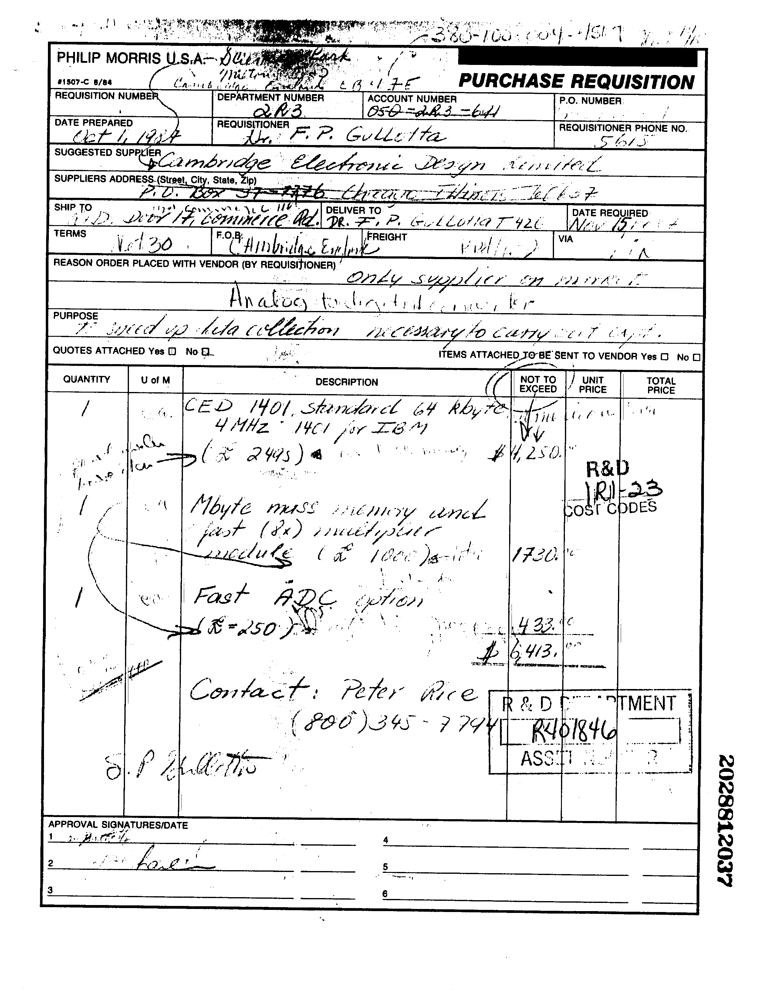 PHILIP MORRIS U.S.A. Science Park
Milton Road
#1507-C 8/84 Cambridge England CB4
PURCHASE REQUISITION
REQUISITION NUMBER
DEPARTMENT NUMBER
2R3
ACCOUNT NUMBER
050-2R3-641
P.O. NUMBER
DATE PREPARED
Oct 1, 1984
REQUISITIONER
Dr. F. P. Gullotta
REQUISITIONER PHONE NO.
5615
SUGGESTED SUPPLIER
Cambridge Electronic Design Limited
SUPPLIERS ADDRESS (Street, City, State, Zip)
P.O. Box Chicago Illinois
SHIP TO
R.D. Door 17, Commerce Rd.
DELIVER TO
DR. F. P. Gullotta T420
DATE REQUIRED
Nov 15
TERMS
Net 30
F.O.B.
Cambridge England
FREIGHT
VIA
REASON ORDER PLACED WITH VENDOR (BY REQUISITIONER)
only supplier on market
Analog to digital converter
PURPOSE
To speed up data collection necessary to carry out expt.
QUOTES ATTACHED Yes □ No □
ITEMS ATTACHED TO BE SENT TO VENDOR Yes □ No □
QUANTITY
U of M
DESCRIPTION
NOT TO EXCEED
UNIT PRICE
TOTAL PRICE
1 ea. CED 1401, Standard 64 kbyte
4 MHz 1401 for IBM
(£ 2495) $4,250.00
R&D
1R1-23
COST CODES
1 ea Mbyte mass memory and
fast (8x) multiplier
module (£ 1000) 1730.00
1 ea. Fast ADC option
(£=250) 433.00
$ 6,413.00
Contact: Peter Rice
(800)345-7794
R & D DEPARTMENT
R401846
ASSET
F. P. Gullotta
APPROVAL SIGNATURES/DATE
1
4
2
5
3
6
2028812037